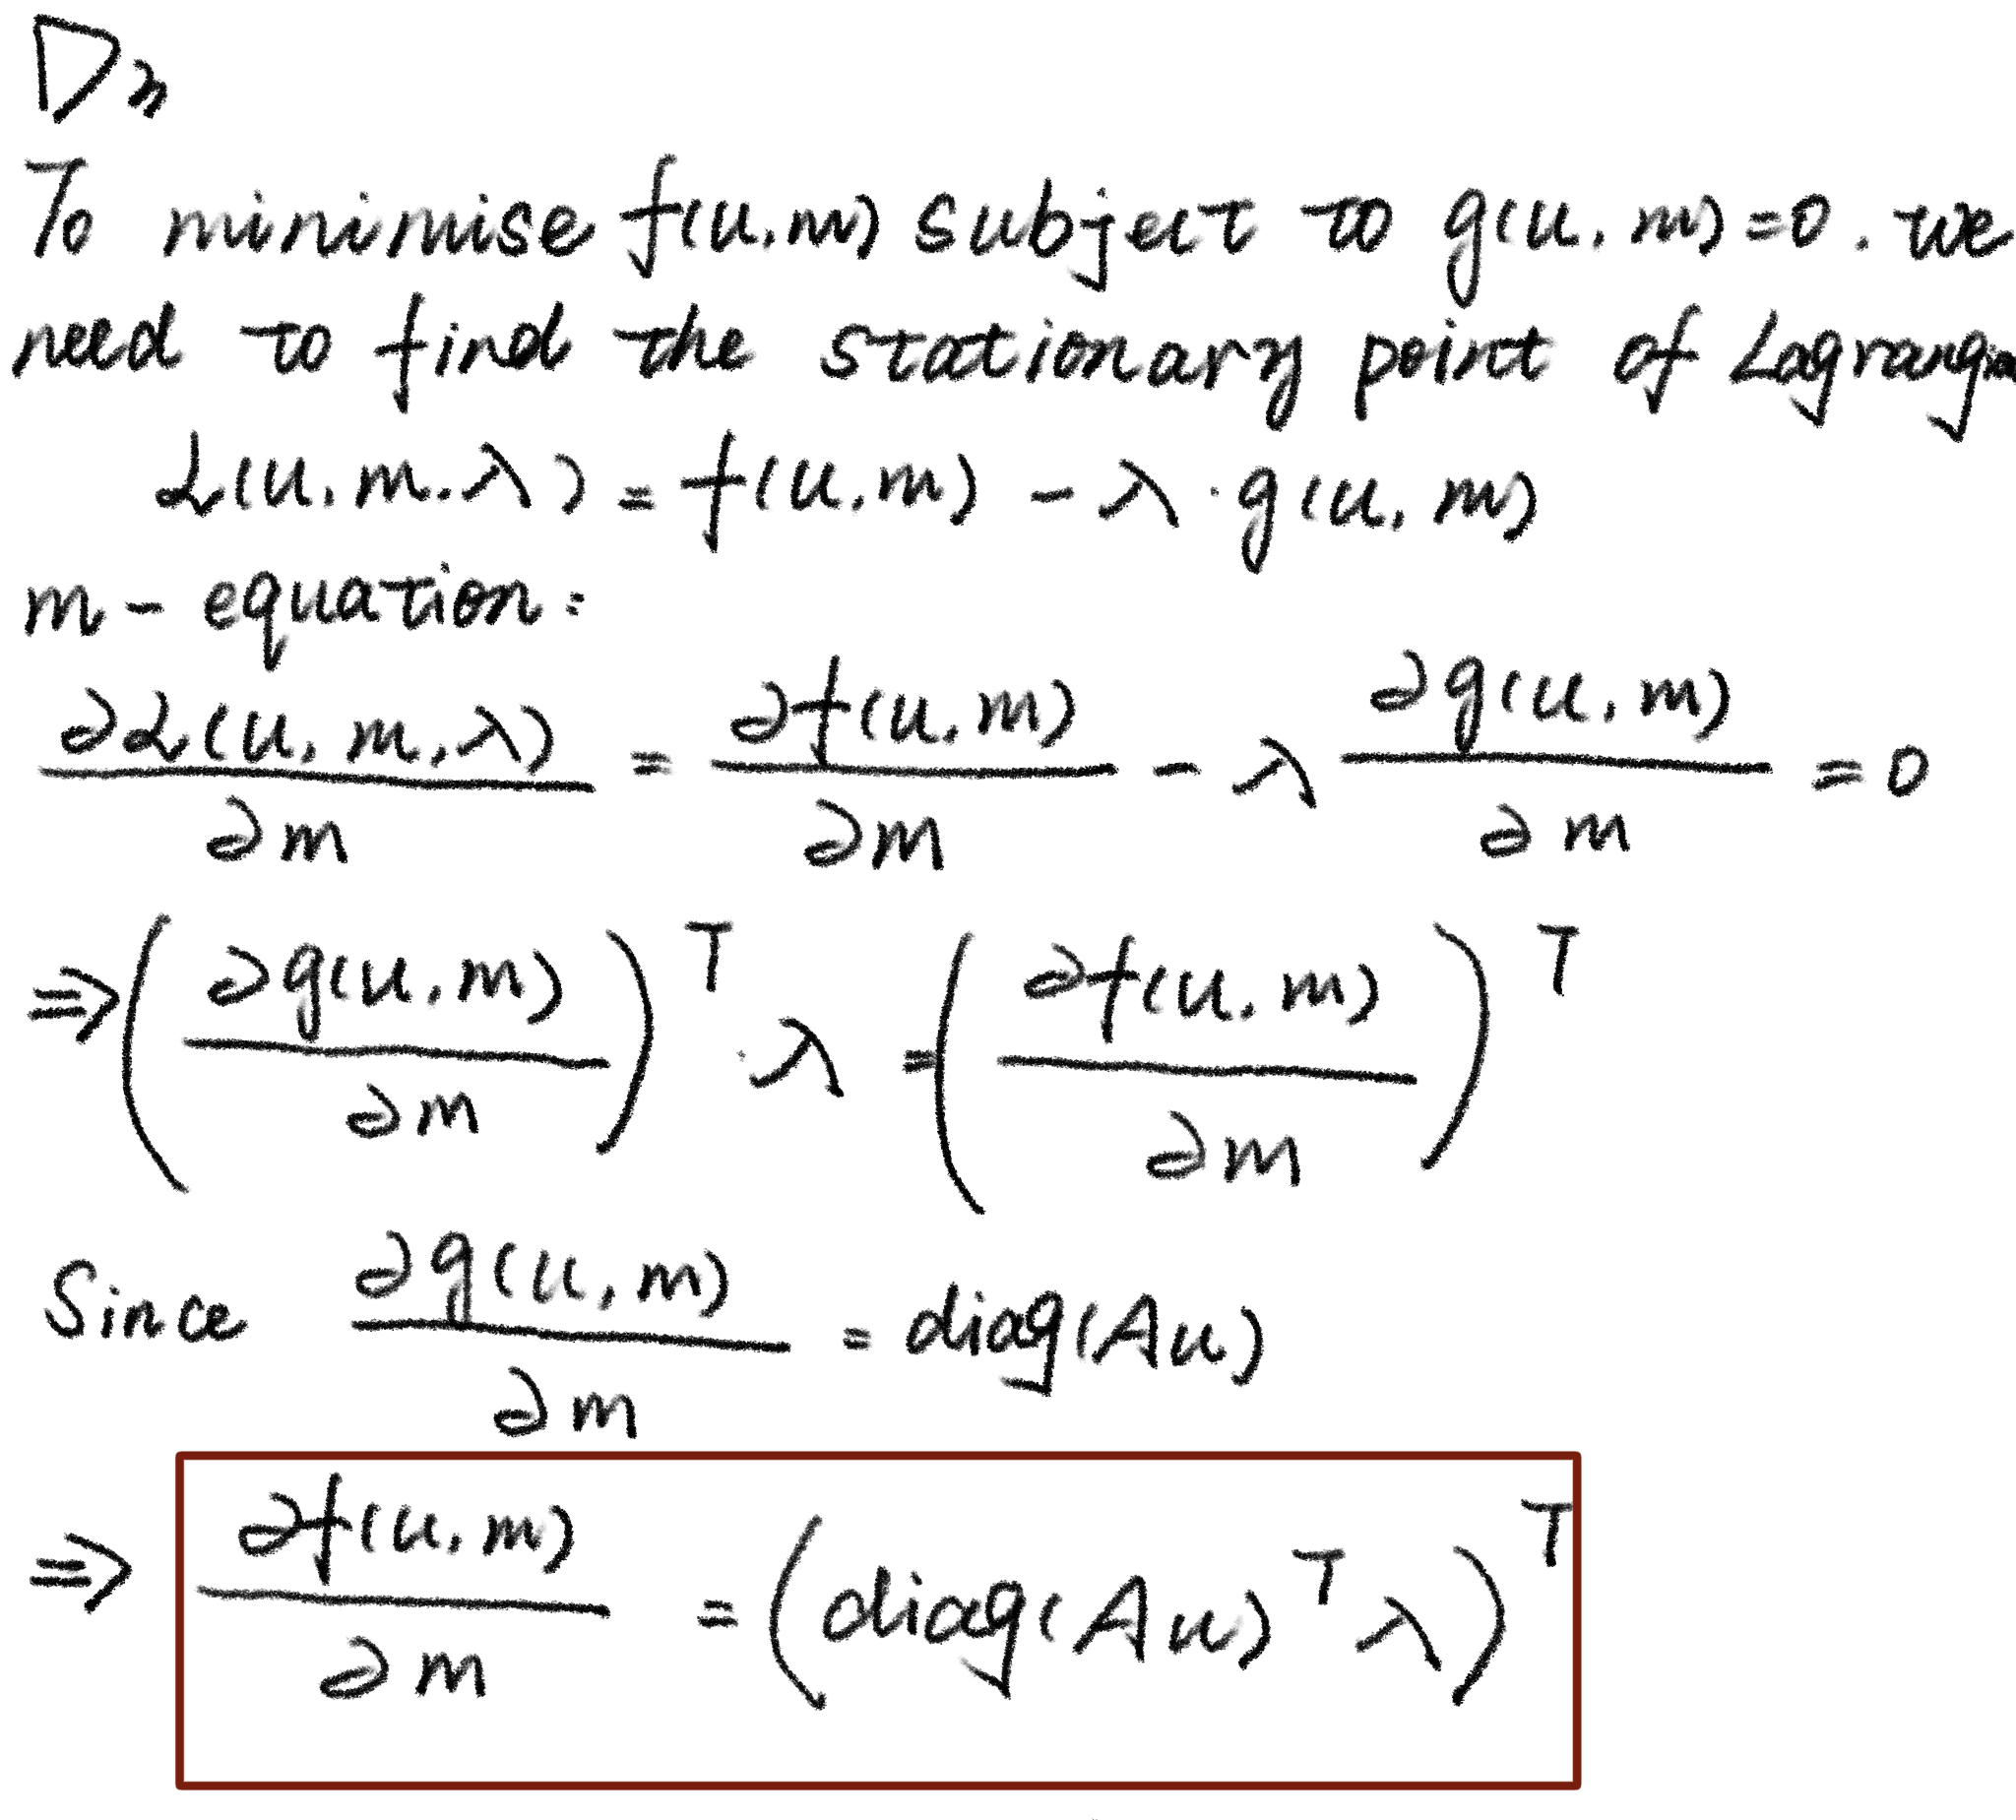 ∇m
To minimise f(u,m) subject to g(u,m)=0. we
need to find the stationary point of Lagrangia
ℒ(u,m,λ) = f(u,m) - λ·g(u,m)
m-equation:
∂ℒ(u,m,λ)/∂m = ∂f(u,m)/∂m - λ ∂g(u,m)/∂m = 0
⇒ (∂g(u,m)/∂m)^T · λ = (∂f(u,m)/∂m)^T
Since ∂g(u,m)/∂m = diag(Au)
⇒ ∂f(u,m)/∂m = (diag(Au)^T λ)^T